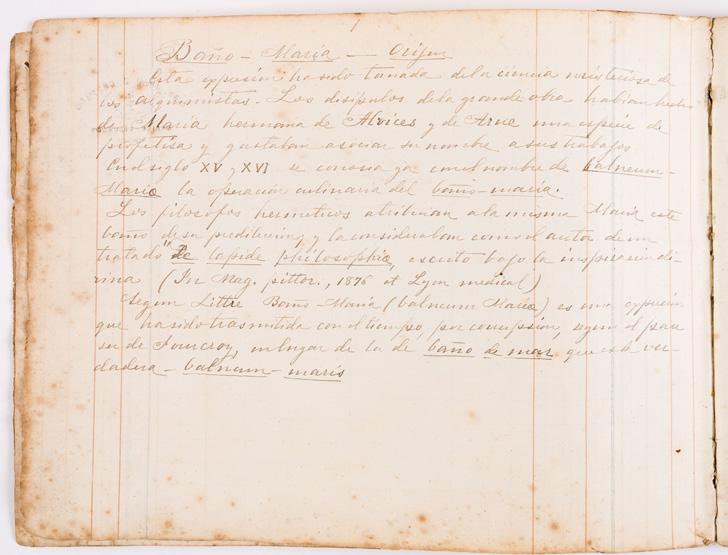 Baño - Maria - Origen
Esta expresión ha sido tomada de la ciencia misteriosa de
los alquimistas. Los disipulos de la grande obra habian hecho
de Maria hermana de Moices y de Aron una especie de
profetisa y gustaban asociar su nombre a sus trabajos
En el siglo XV y XVI se conosia ya con el nombre de balneum-
Mariæ la operación culinaria del baño-maria.
Los filosofos hermeticos atribuian a la misma Maria este
baño de su predilución, y la consideraban como el autor de un
tratado "De lapide philosophiæ, escrito bajo la inspiración di-
vina (In Mag. pittor., 1876 et Lyon medical)
Segun Littre Baño-Maria (balneum Mariæ) es una expresión
que ha sido trasmitida con el tiempo, por corrupsión, segun el pare
ser de Fourcroy, en lugar de la de baño de mar, que es la ver-
dadera - balneum - maris